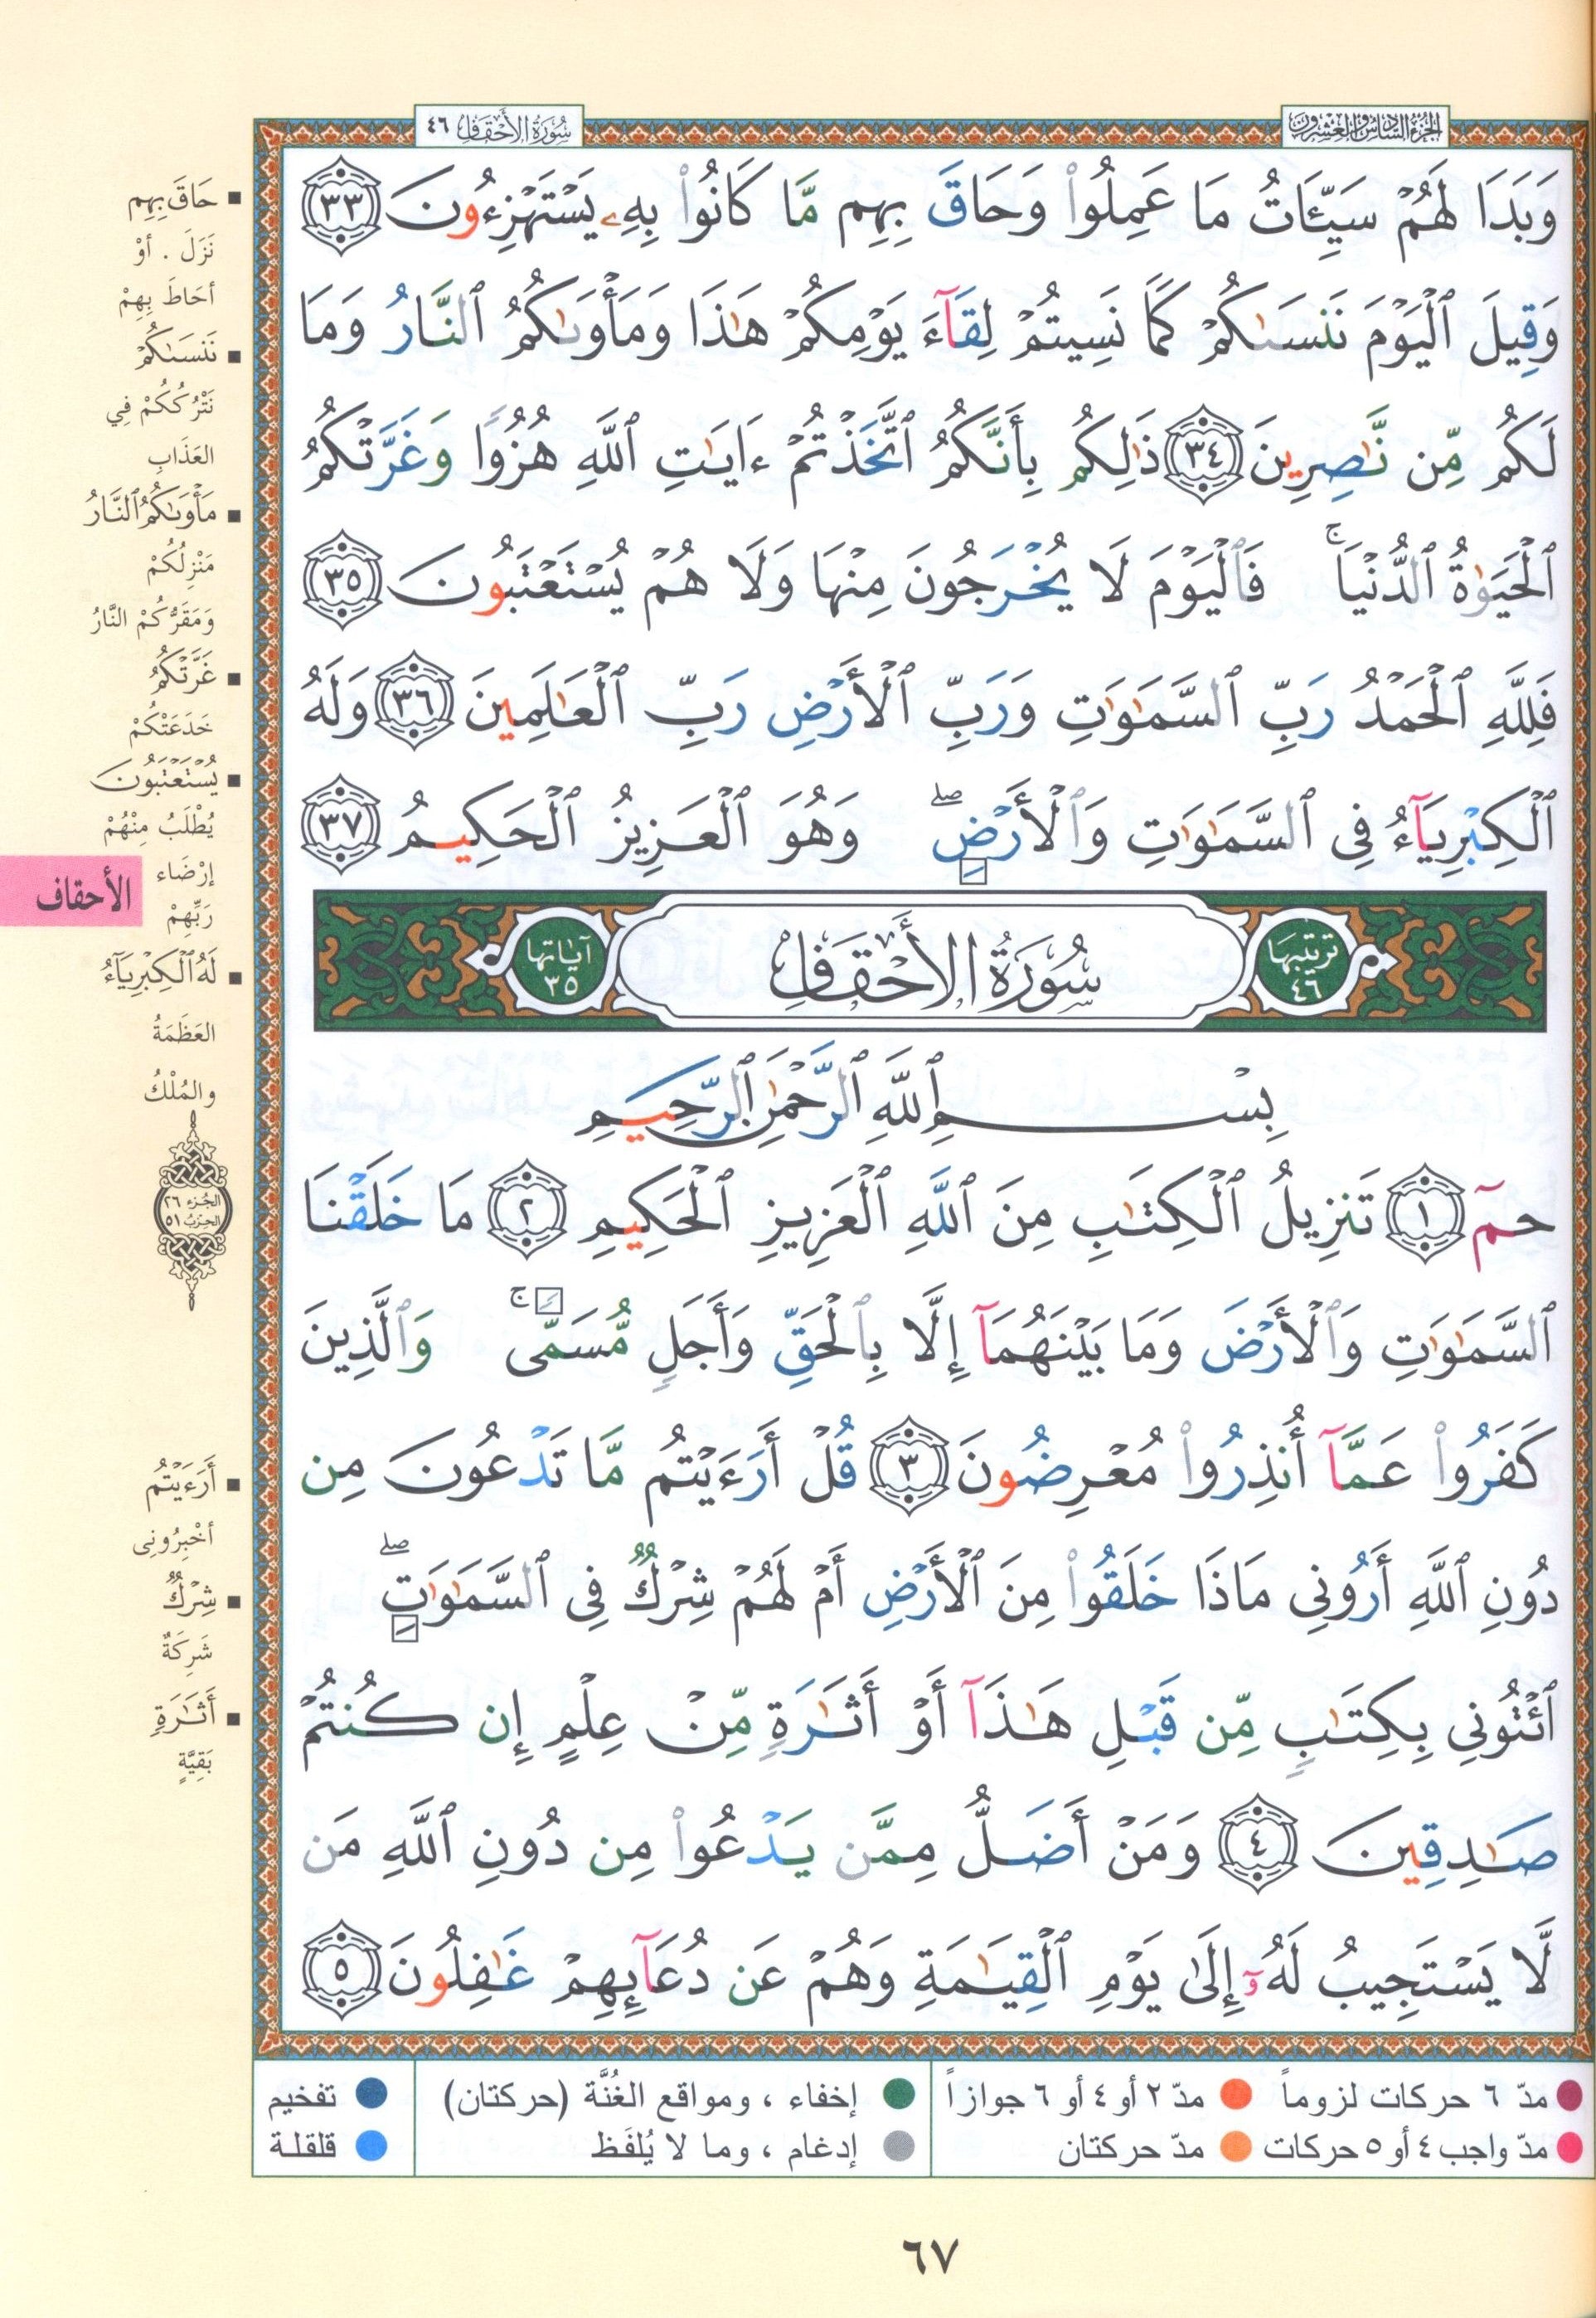 الجزء السادس والعشرون
سُورَةُ الأَحْقَافِ ٤٦
وَبَدَا لَهُمْ سَيِّـَٔاتُ مَا عَمِلُوا۟ وَحَاقَ بِهِم مَّا كَانُوا۟ بِهِۦ يَسْتَهْزِءُونَ ٣٣
وَقِيلَ ٱلْيَوْمَ نَنسَىٰكُمْ كَمَا نَسِيتُمْ لِقَآءَ يَوْمِكُمْ هَٰذَا وَمَأْوَىٰكُمُ ٱلنَّارُ وَمَا
لَكُم مِّن نَّٰصِرِينَ ٣٤ ذَٰلِكُم بِأَنَّكُمُ ٱتَّخَذْتُمْ ءَايَٰتِ ٱللَّهِ هُزُوًا وَغَرَّتْكُمُ
ٱلْحَيَوٰةُ ٱلدُّنْيَا ۚ فَٱلْيَوْمَ لَا يُخْرَجُونَ مِنْهَا وَلَا هُمْ يُسْتَعْتَبُونَ ٣٥
فَلِلَّهِ ٱلْحَمْدُ رَبِّ ٱلسَّمَٰوَٰتِ وَرَبِّ ٱلْأَرْضِ رَبِّ ٱلْعَٰلَمِينَ ٣٦ وَلَهُ
ٱلْكِبْرِيَآءُ فِى ٱلسَّمَٰوَٰتِ وَٱلْأَرْضِ ۖ وَهُوَ ٱلْعَزِيزُ ٱلْحَكِيمُ ٣٧
ترتيبها ٤٦
سُورَةُ الأَحْقَافِ
آياتها ٣٥
بِسْمِ ٱللَّهِ ٱلرَّحْمَٰنِ ٱلرَّحِيمِ
حمٓ ١ تَنزِيلُ ٱلْكِتَٰبِ مِنَ ٱللَّهِ ٱلْعَزِيزِ ٱلْحَكِيمِ ٢ مَا خَلَقْنَا
ٱلسَّمَٰوَٰتِ وَٱلْأَرْضَ وَمَا بَيْنَهُمَآ إِلَّا بِٱلْحَقِّ وَأَجَلٍ مُّسَمًّى ۚ وَٱلَّذِينَ
كَفَرُوا۟ عَمَّآ أُنذِرُوا۟ مُعْرِضُونَ ٣ قُلْ أَرَءَيْتُم مَّا تَدْعُونَ مِن
دُونِ ٱللَّهِ أَرُونِى مَاذَا خَلَقُوا۟ مِنَ ٱلْأَرْضِ أَمْ لَهُمْ شِرْكٌ فِى ٱلسَّمَٰوَٰتِ ۖ
ٱئْتُونِى بِكِتَٰبٍ مِّن قَبْلِ هَٰذَآ أَوْ أَثَٰرَةٍ مِّنْ عِلْمٍ إِن كُنتُمْ
صَٰدِقِينَ ٤ وَمَنْ أَضَلُّ مِمَّن يَدْعُوا۟ مِن دُونِ ٱللَّهِ مَن
لَّا يَسْتَجِيبُ لَهُۥٓ إِلَىٰ يَوْمِ ٱلْقِيَٰمَةِ وَهُمْ عَن دُعَآئِهِمْ غَٰفِلُونَ ٥
حَاقَ بِهِم
نَزَلَ . أوْ
أحَاطَ بِهِمْ
نَنسَىٰكُمْ
نَتْرُكُكُمْ فِي
العَذَابِ
مَأْوَىٰكُمُ ٱلنَّارُ
مَنْزِلُكُمْ
وَمَقَرُّكُمْ النَّارُ
غَرَّتْكُمُ
خَدَعَتْكُمْ
يُسْتَعْتَبُونَ
يُطْلَبُ مِنْهُمْ
إرْضَاء
رَبِّهِمْ
الأحقاف
لَهُ ٱلْكِبْرِيَآءُ
العَظَمَةُ
والمُلْكُ
الجُزء ٢٦
الحِزبُ ٥١
أَرَءَيْتُمْ
أخْبِرُونِى
شِرْكٌ
شَرِكَةٌ
أَثَٰرَةٍ
بَقِيَّةٍ
مدّ ٦ حركات لزوماً
مدّ ٢ أو ٤ أو ٦ جوازاً
إخفاء ، ومواقع الغُنَّة (حركتان)
تفخيم
مدّ واجب ٤ أو ٥ حركات
مدّ حركتان
إدغام ، وما لا يُلفَظ
قلقلة
٦٧